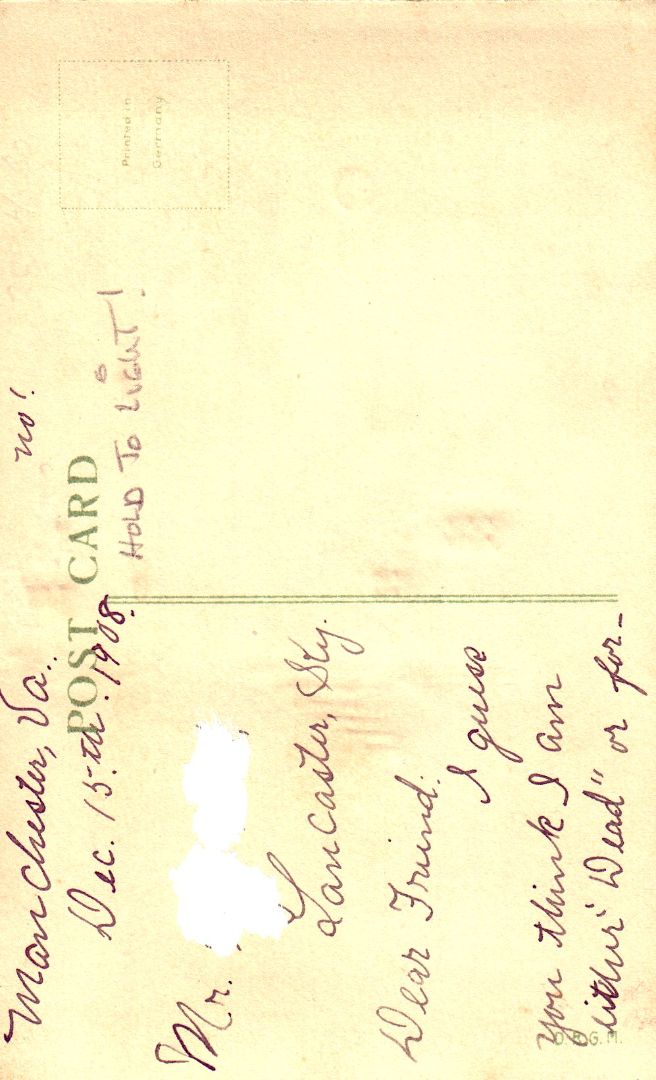 Manchester, Va.
no!
POST CARD
Dec. 15-th. 1908.
HOLD TO LIGHT!
Printed in
Germany
Mr.
Lancaster, Ky.
Dear Friend:
I guess
you think I am
either "Dead" or for-
D.R.G.M.